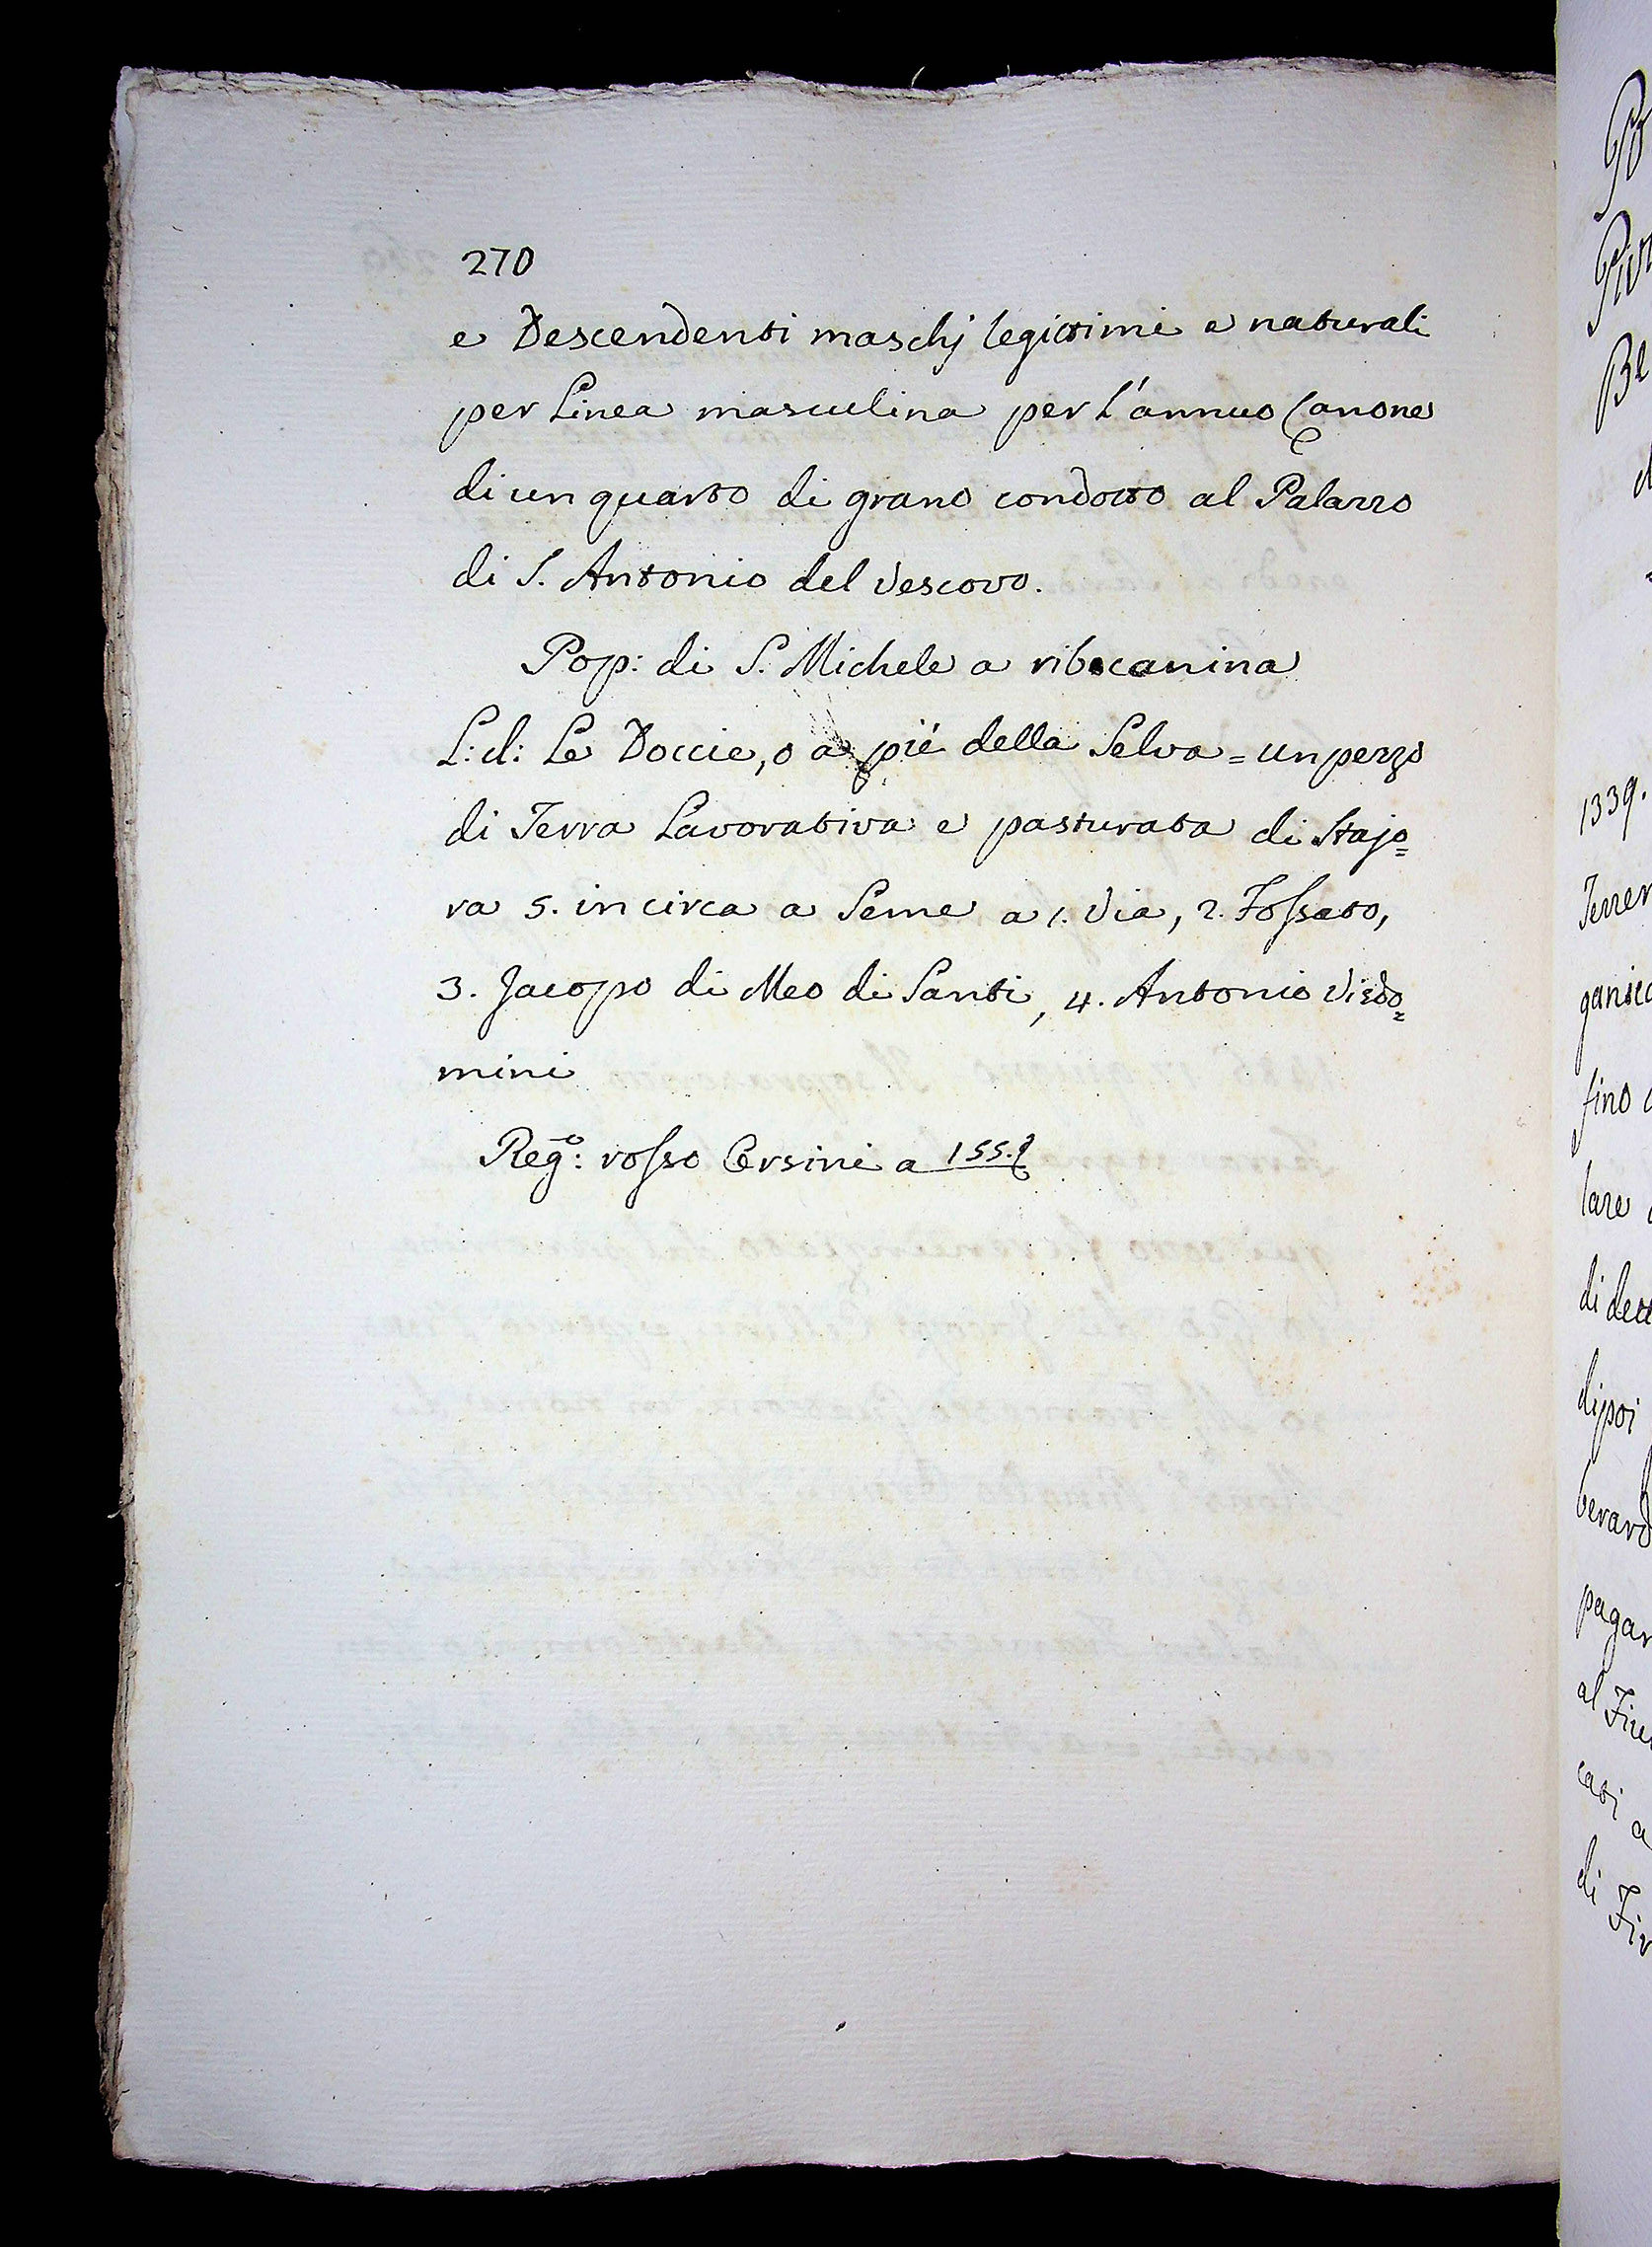 270
e Descendenti maschj legittimi e naturali
per Linea masculina per l'annuo Canone
di un quarto di grano condotto al Palazzo
di S. Antonio del Vescovo.
Pop: di S. Michele a ribocanina
L: d: Le Doccie, o a pié della Selva = un pezzo
di Terra Lavorativa e pasturata di Stajo=
ra 5. in circa a Seme a 1. Via, 2. Fossato,
3. Jacopo di Meo di Santi, 4. Antonio Visdo=
mini
Reg.o: rosso Orsini a 155.
1339.
fino
di dett
dipoi
pagar